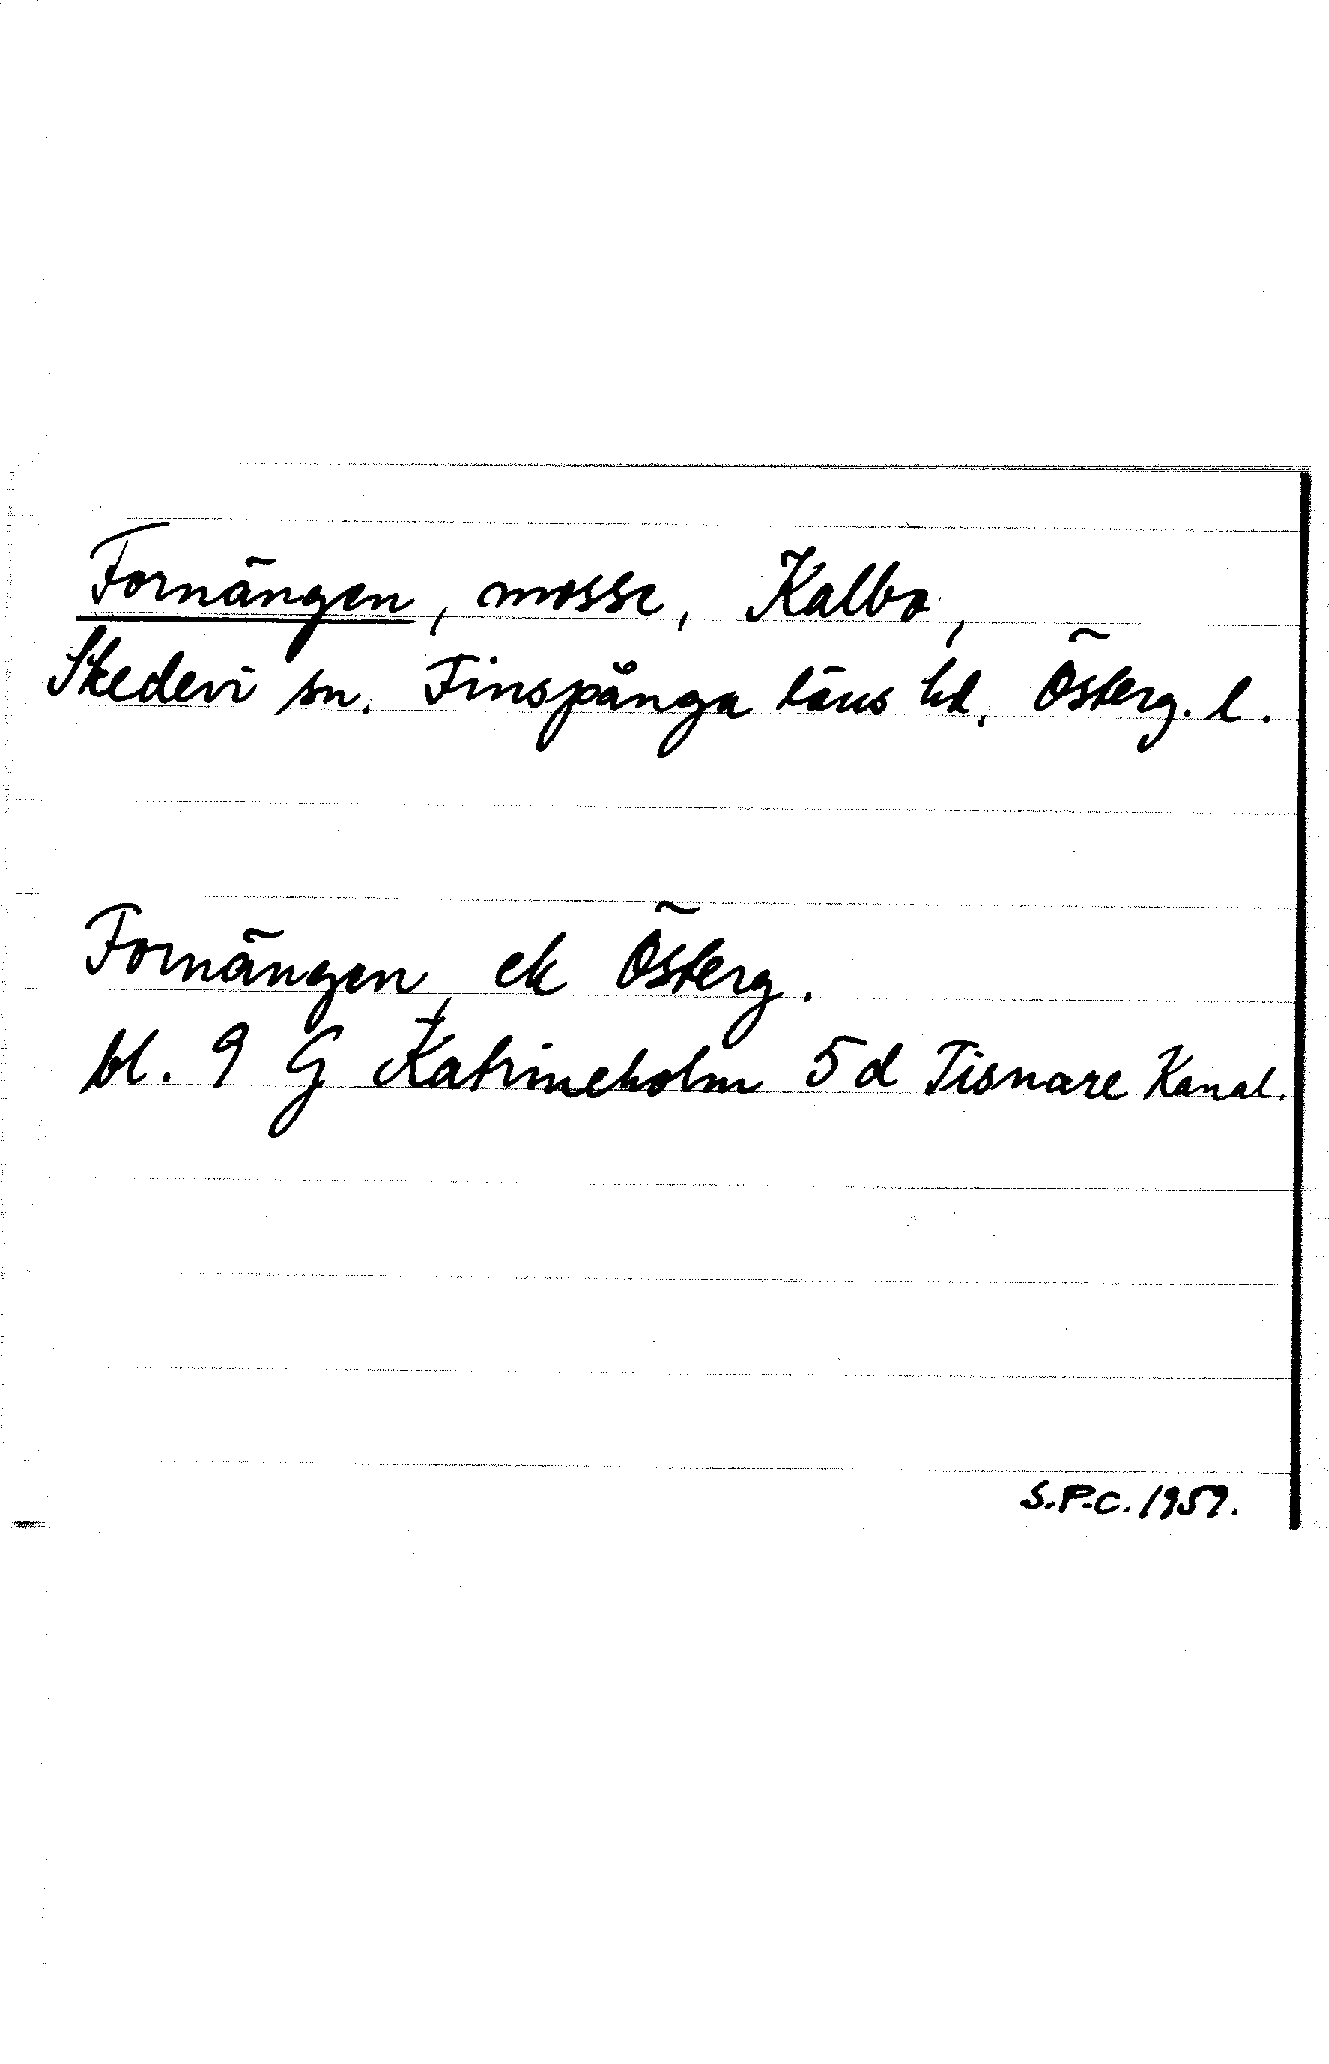 Fornängen, mosse, Kalbo,
Skedevi sn. Finspånga läns hd. Österg. l.
Fornängen, ek Österg.
bl. 9 G Katrineholm 5d Tisnare Kanal.
S.P-C. 1959.